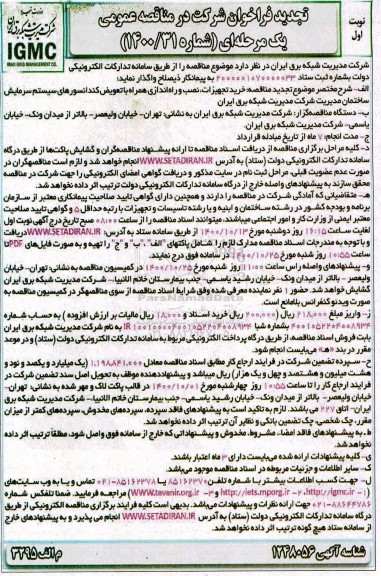 نوبت اول
تجدید فراخوان شرکت در مناقصه عمومی
یک مرحله‌ای (شماره ۱۴۰۰/۳۱)
IGMC
IRAN GRID MANAGEMENT CO.
شرکت مدیریت شبکه برق ایران در نظر دارد موضوع مناقصه را از طریق سامانه تدارکات الکترونیکی
دولت بشماره ثبت ستاد ۲۰۰۰۰۰۱۰۷۰۰۰۰۰۳۳ به پیمانکار ذیصلاح واگذار نماید:
الف- شرح مختصر موضوع تجدید مناقصه: خرید تجهیزات، نصب و راه‌اندازی همراه با تعویض کندانسورهای سیستم سرمایش
ساختمان مدیریت شبکه برق ایران
ب- دستگاه مناقصه‌گزار: شرکت مدیریت شبکه برق ایران به نشانی: تهران- خیابان ولیعصر- بالاتر از میدان ونک- خیابان
یاسمی- شرکت مدیریت شبکه برق ایران.
ج- مدت انجام: ۷ ماه از تاریخ مبادله قرارداد
د- کلیه مراحل برگزاری مناقصه از دریافت اسناد مناقصه تا ارائه پیشنهاد مناقصه‌گران و گشایش پاکت‌ها از طریق درگاه
سامانه تدارکات الکترونیکی دولت (ستاد) به آدرس WWW.SETADIRAN.IR انجام خواهد شد و لازم است مناقصه‌گران در
صورت عدم عضویت قبلی، مراحل ثبت نام در سایت مذکور و دریافت گواهی امضای الکترونیکی را جهت شرکت در مناقصه
محقق سازند به پیشنهادهای واصله خارج از درگاه سامانه تدارکات الکترونیکی دولت ترتیب اثر داده نخواهد شد.
ه- متقاضیانی که آمادگی شرکت در مناقصه را دارند و همچنین دارای گواهی تایید صلاحیت پیمانکاری معتبر از سازمان
برنامه و بودجه کشور در رشته ساختمان و ابنیه و یا رشته تاسیسات و تجهیزات با رتبه حداقل ۵ و گواهی تایید صلاحیت
معتبر ایمنی از وزارت کار و امور اجتماعی میباشند میتوانند اسناد مناقصه را از ساعت ۰۸:۰۰ صبح تاریخ درج آگهی نوبت اول
لغایت ساعت ۱۶:۱۵ روز دوشنبه مورخ ۱۴۰۰/۱۰/۱۳ از طریق سامانه ستاد به آدرس: WWW.SETADIRAN.IR دریافت
و با توجه به مندرجات اسناد مناقصه مدارک لازم را شامل پاکتهای "الف"، "ب" و "ج" را تهیه و به صورت فایل‌های PDF تا
ساعت ۱۰:۵۵ روز شنبه مورخ ۱۴۰۰/۱۰/۲۵ در سامانه فوق درج نمایند.
و- پیشنهادهای واصله راس ساعت ۱۱:۰۰ روز شنبه مورخ ۱۴۰۰/۱۰/۲۵ در کمیسیون مناقصه به نشانی: تهران- خیابان
ولیعصر- بالاتر از میدان ونک- خیابان رشید یاسمی- جنب بیمارستان خاتم الانبیا- شرکت مدیریت شبکه برق ایران
گشایش خواهد شد. حضور ۱ نفر نماینده معرفی شده وفق شرایط اسناد مناقصه از سوی مناقصه‌گر در کمیسیون مناقصه به
صورت ویدئو کنفرانس بلامانع است.
ز- واریز مبلغ ۲۱۸,۰۰۰ ریال (۲۰۰,۰۰۰ ریال خرید اسناد و ۱۸,۰۰۰ ریال مالیات بر ارزش افزوده) به حساب شماره
به نام شرکت مدیریت شبکه برق ایران
وفق فروش اسناد مناقصه از طریق درگاه پرداخت الکترونیکی مربوط به سامانه تدارکات الکترونیکی دولت (ستاد) و در موعد
مقرر در بند «ه» می‌بایست انجام شود.
ح- سپرده تضمین شرکت در فرآیند ارجاع کار مطابق اسناد مناقصه معادل ۱,۱۹۸,۸۴۱,۰۰۰ (یک میلیارد و یکصد و نود و
هشت میلیون و هشتصد و چهل و یک هزار) ریال میباشد و پیشنهاددهنده موظف به تحویل اصل سند تضمین شرکت در
فرآیند ارجاع کار را تا ساعت ۱۰:۵۵ روز چهارشنبه مورخ ۱۴۰۰/۱۰/۰۱ در قالب پاکت لاک و مهر شده به نشانی: تهران-
خیابان ولیعصر- بالاتر از میدان ونک- خیابان رشید یاسمی- جنب بیمارستان خاتم الانبیا- شرکت مدیریت شبکه برق
ایران- اتاق ۲۲۷ می باشند. لازم به تاکید است به پیشنهادهای فاقد سپرده، سپرده‌های مخدوش، سپرده‌های کمتر از میزان
مقرر، چک شخصی، چک تضمین بانکی و نظایر آن ترتیب اثر داده نخواهد شد.
ط- به پیشنهادهای فاقد امضا، مشروط، مخدوش و پیشنهاداتی که خارج از سامانه فوق واصل شود، مطلقا ترتیب اثر داده
نخواهد شد.
ی- کلیه پیشنهادات ارائه شده می‌بایست دارای ۳ ماه اعتبار باشند.
ک- سایر اطلاعات و جزئیات مربوطه در اسناد مناقصه موجود می‌باشد.
ل- جهت کسب اطلاعات بیشتر با شماره تلفن ۸۵۱۶۲۳۷۰ یا ۰۲۱-۸۵۱۶۲۳۷۸ تماس و یا به وب سایت‌های
(۱- http://igmc.ir ۲- http://iets.mporg.ir و ۳- WWW.tavanir.org.ir) مراجعه فرمایید. ضمنا تلفکس شماره
۰۲۱-۸۸۶۴۴۷۸۶ جهت ارائه نظرات و پیشنهادات می‌باشد. بدیهی است کلیه فرآیند برگزاری مناقصه الکترونیکی از طریق
درگاه سامانه تدارکات الکترونیکی دولت (ستاد) به آدرس WWW.SETADIRAN.IR انجام می پذیرد و به پیشنهادهای خارج
از سامانه ستاد هیچ گونه ترتیب اثر داده نخواهد شد.
شناسه آگهی ۱۲۴۸۰۵۶
م الف ۳۲۹۵